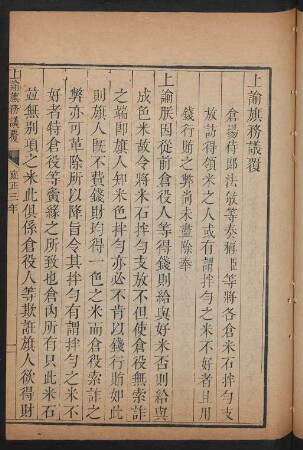 上諭旗務議覆
倉場侍郎法敏等奏稱臣等將各倉米石拌勻支
放訪得領米之人或有謂拌勻之米不好者且用
錢行賄之弊尚未盡除奉
上諭朕因從前倉役人等得錢則給與好米否則給與
成色米故令將米石拌勻支放不但使倉役無索詐
之端即旗人知米色拌勻亦必不肯以錢行賄如此
則旗人既不費錢財均得一色之米而倉役索詐之
弊亦可革除所以降旨令其拌勻有謂拌勻之米不
好者特倉役等夤緣之所致也倉內所有只此米石
並無別項之米此俱係倉役人等欺誑旗人欲得財
上諭旗務議覆
雍正三年
一